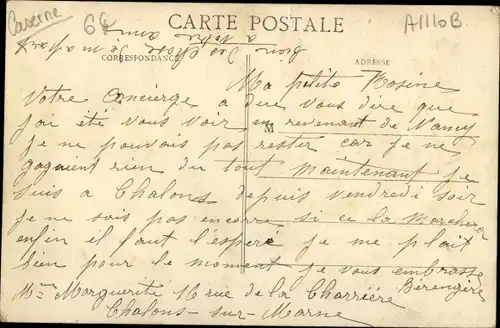 Caserne
64
A1110B
CARTE POSTALE
CORRESPONDANCE
ADRESSE
M
Ma petite Rosine
Votre Concierge a due vous dire que
j'ai été vous voir en revenant de Nancy
je ne pouvais pas rester car je ne
gagaient rien du tout maintenant je
suis a Chalons depuis vendredi soir
je ne sais pas encorre si ce la Marchera
enfin il faut l'esperé je me plait
bien pour le moment je vous embrasse
Bérengère
Mme Marguerite M rue de la Charriére
Chalons-sur-Marne
a votre amie